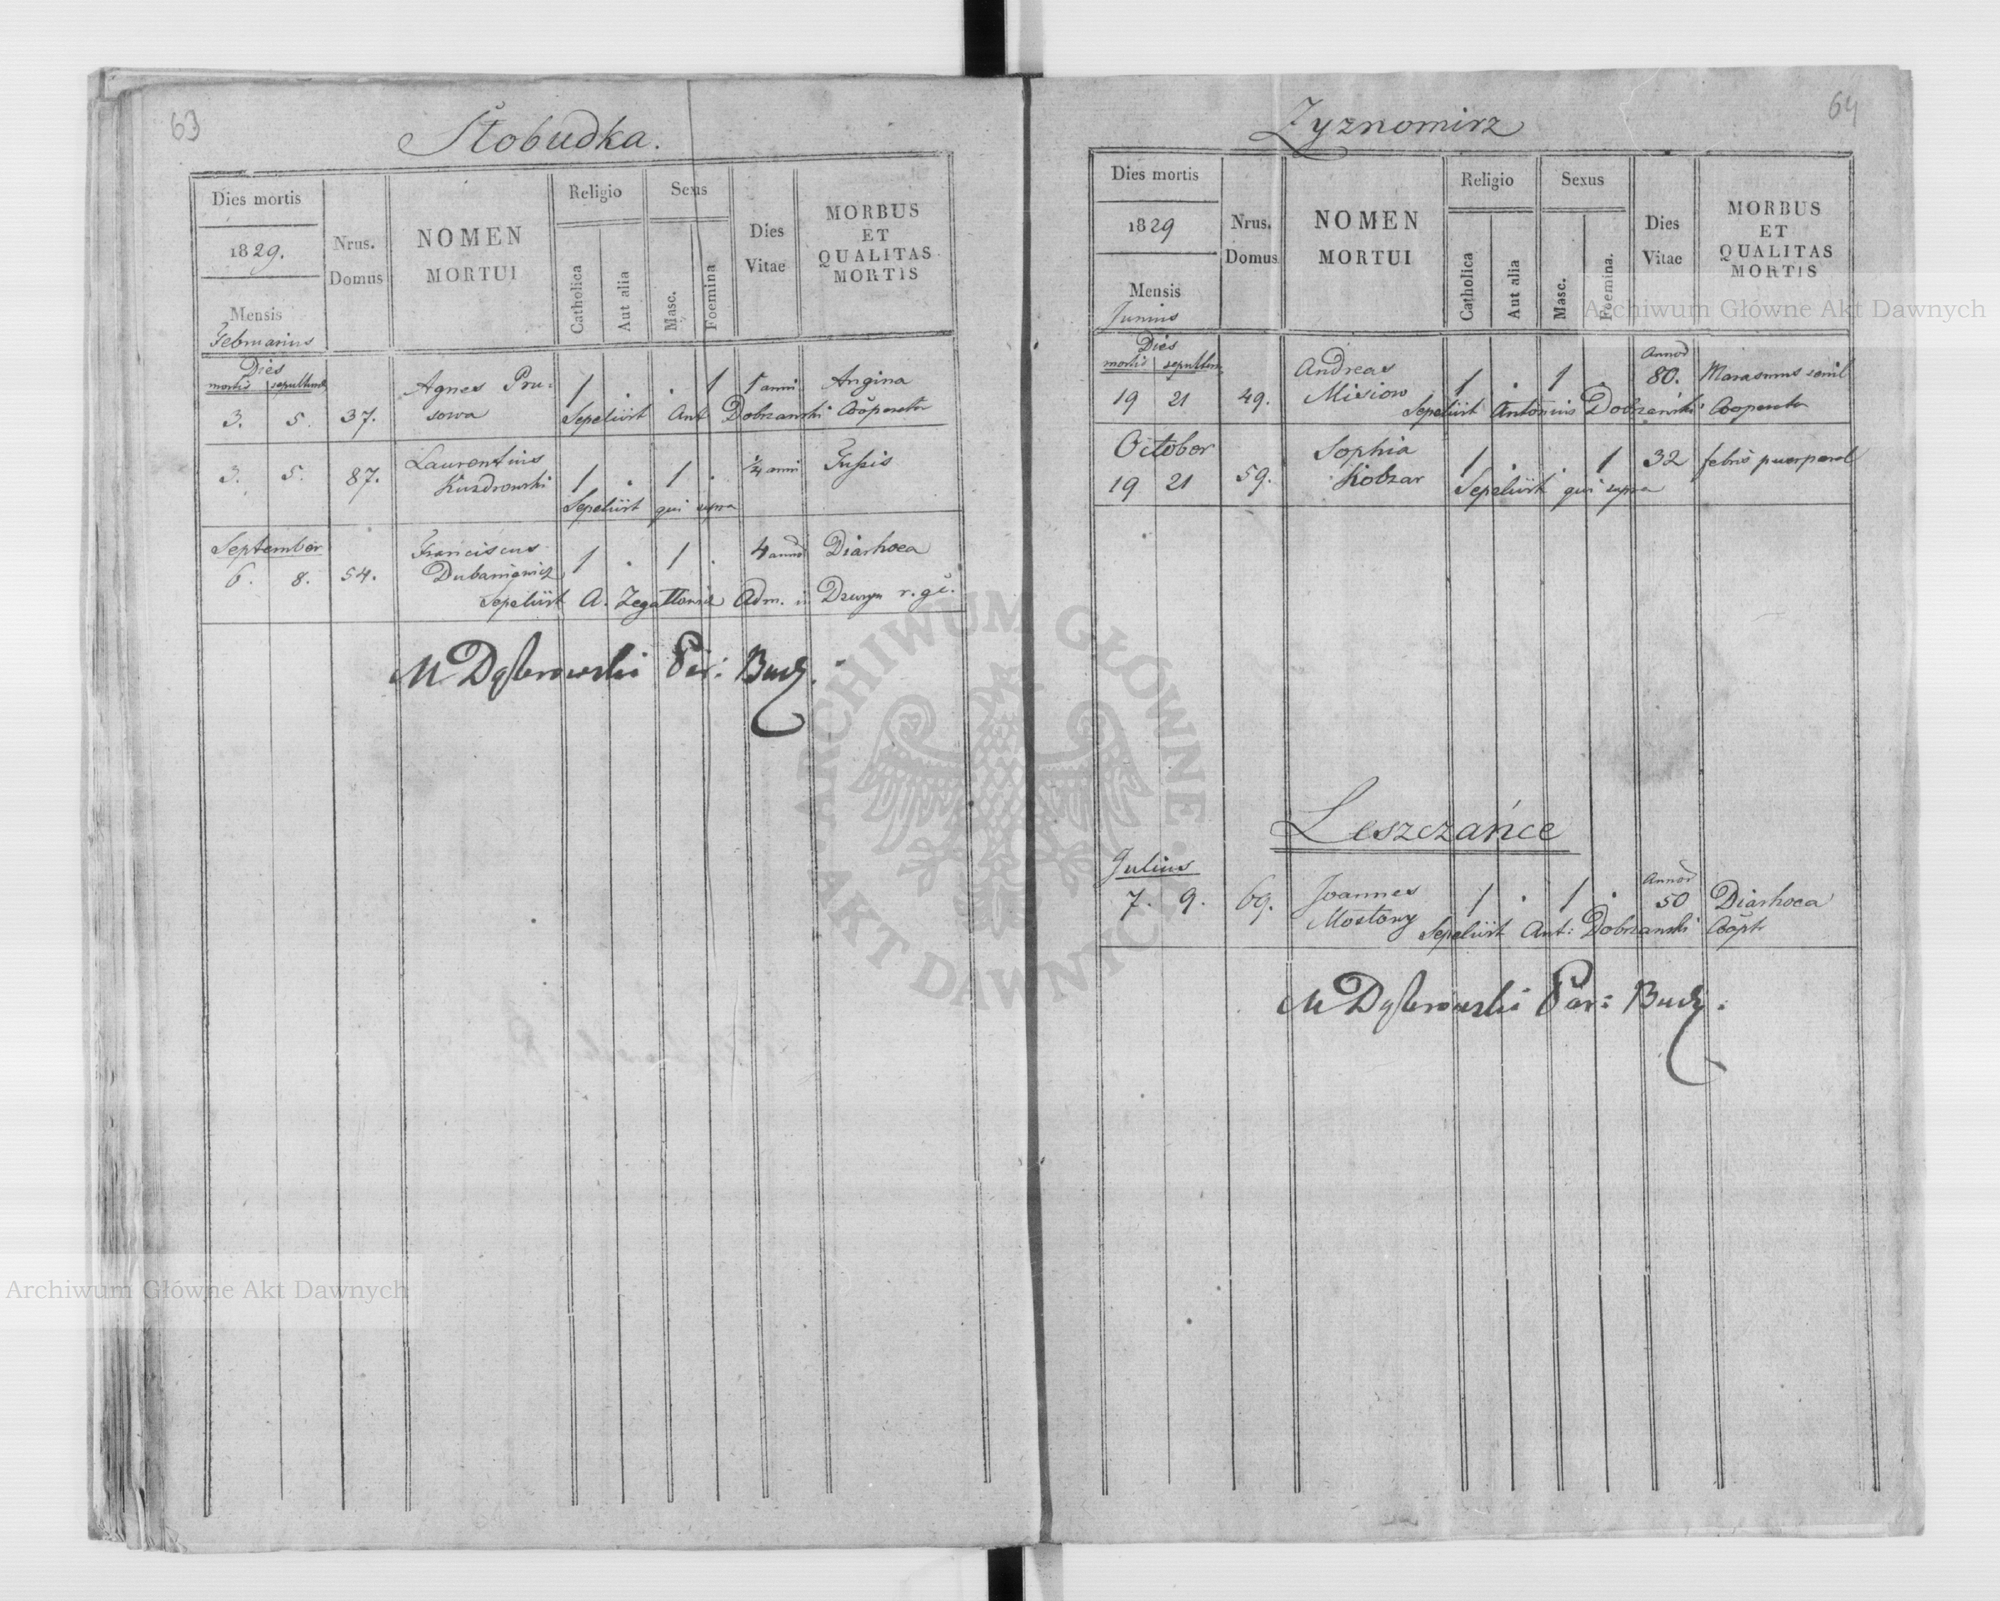 63
Słobudka.
Dies mortis
1829.
Mensis
Februarius
Nrus.
Domus
NOMEN
MORTUI
Religio
Catholica
Aut alia
Sexus
Masc.
Foemina
Dies
Vitae
MORBUS
ET
QUALITAS
MORTIS
Dies
mortis sepulturae
3. 5. 37. Agnes Pru=
sowa 1 . . 1 1 anni Angina
Sepeliit Ant Dobrzanski Cooperator
3. 5. 87. Laurentius
1 . 1 . ¼ anni Tussis
Sepeliit qui supra
September
6. 8. 54. Franciscus
Dubaniewicz 1 . 1 . 4 annor Diarhoea
Sepeliit A. Adm. r. g.
M Dąbrowski Par: Bucz.
64
Zyznomirz
Dies mortis
1829
Mensis
Junius
Nrus.
Domus
NOMEN
MORTUI
Religio
Catholica
Aut alia
Sexus
Masc.
Foemina.
Dies
Vitae
MORBUS
ET
QUALITAS
MORTIS
Dies
mortis sepulturae
19 21 49. Andreas
Misiow 1 . 1 . Annor
80. Marasmus senil
Sepeliit Antonius Dobrzański Cooperator
October
19 21 59. Sophia
Kobzar 1 . . 1 32 febris puerperal
Sepeliit qui supra
Leszczańce
Julius
7. 9. 69. Joannes
Mostowy 1 . 1 . Annor
50 Diarhoea
Sepeliit Ant: Dobrzanski Coopr
M Dąbrowski Par: Bucz.
Archiwum Główne Akt Dawnych
Archiwum Główne Akt Dawnych
ARCHIWUM GŁÓWNE AKT DAWNYCH